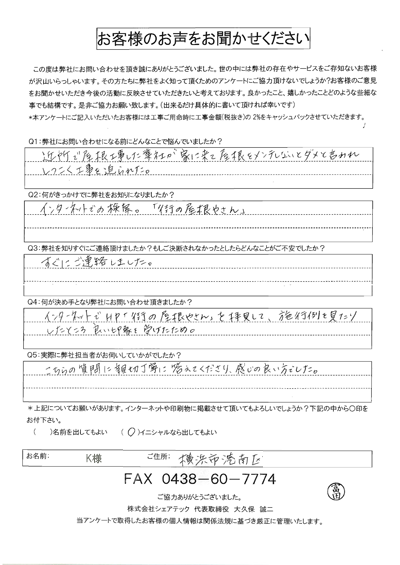 お客様のお声をお聞かせください
この度は弊社にお問い合わせを頂き誠にありがとうございました。世の中には弊社の存在やサービスをご存知ないお客様
が沢山いらっしゃいます。その方たちに弊社をよく知って頂くためのアンケートにご協力頂けないでしょうか?お客様のご意見
をお聞かせいただき今後の活動に反映させていただきたいと考えております。良かったこと、嬉しかったことどのような些細な
事でも結構です。是非ご協力お願い致します。(出来るだけ具体的に書いて頂ければ幸いです)
*本アンケートにご記入いただいたお客様には工事ご用命時に工事金額(税抜き)の 2%をキャッシュバックさせていただきます。
Q1:弊社にお問い合わせになる前にどんなことで悩んでいましたか?
近所で屋根工事した業社が家に来て屋根をメンテしないとダメと言われ
しつこく工事を迫られた。
Q2:何がきっかけでに弊社をお知りになりましたか?
インターネットでの検索。「街の屋根やさん」
Q3:弊社を知りすぐにご連絡頂けましたか?もしご決断されなかったとしたらどんなことがご不安でしたか?
すぐにご連絡しました。
Q4:何が決め手となり弊社にお問い合わせ頂きましたか?
インターネットでHP「街の屋根やさん」を拝見して、施行例を見たり
したところ良い印象を受けたため。
Q5:実際に弊社担当者がお伺いしていかがでしたか?
こちらの質問に親切丁寧に答えてくださり、感じの良い方でした。
*上記についてお願いがあります。インターネットや印刷物に掲載させて頂いてもよろしいでしょうか?下記の中から○印を
お付下さい。
( )名前を出してもよい (○)イニシャルなら出してもよい
お名前: K様 ご住所: 横浜市港南区
FAX 0438-60-7774
ご協力ありがとうございました。
株式会社シェアテック 代表取締役 大久保 誠二
当アンケートで取得したお客様の個人情報は関係法規に基づき厳正に管理いたします。